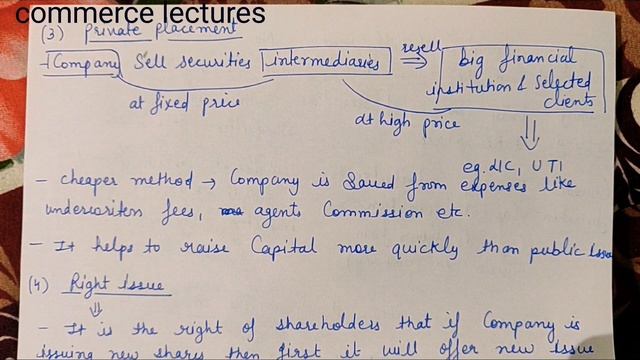 commerce lectures
(3) Private placement
- Company Sell securities intermediaries resell ⇒ big financial
institution & Selected
clients
at fixed price
at high price
eg. LIC, UTI
- cheaper method → Company is Saved from expenses like
underwriters fees, agents Commission etc.
- It helps to raise Capital more quickly than public Issue
(4) Right Issue
- It is the right of shareholders that if Company is
issuing new shares then first it will offer new issue